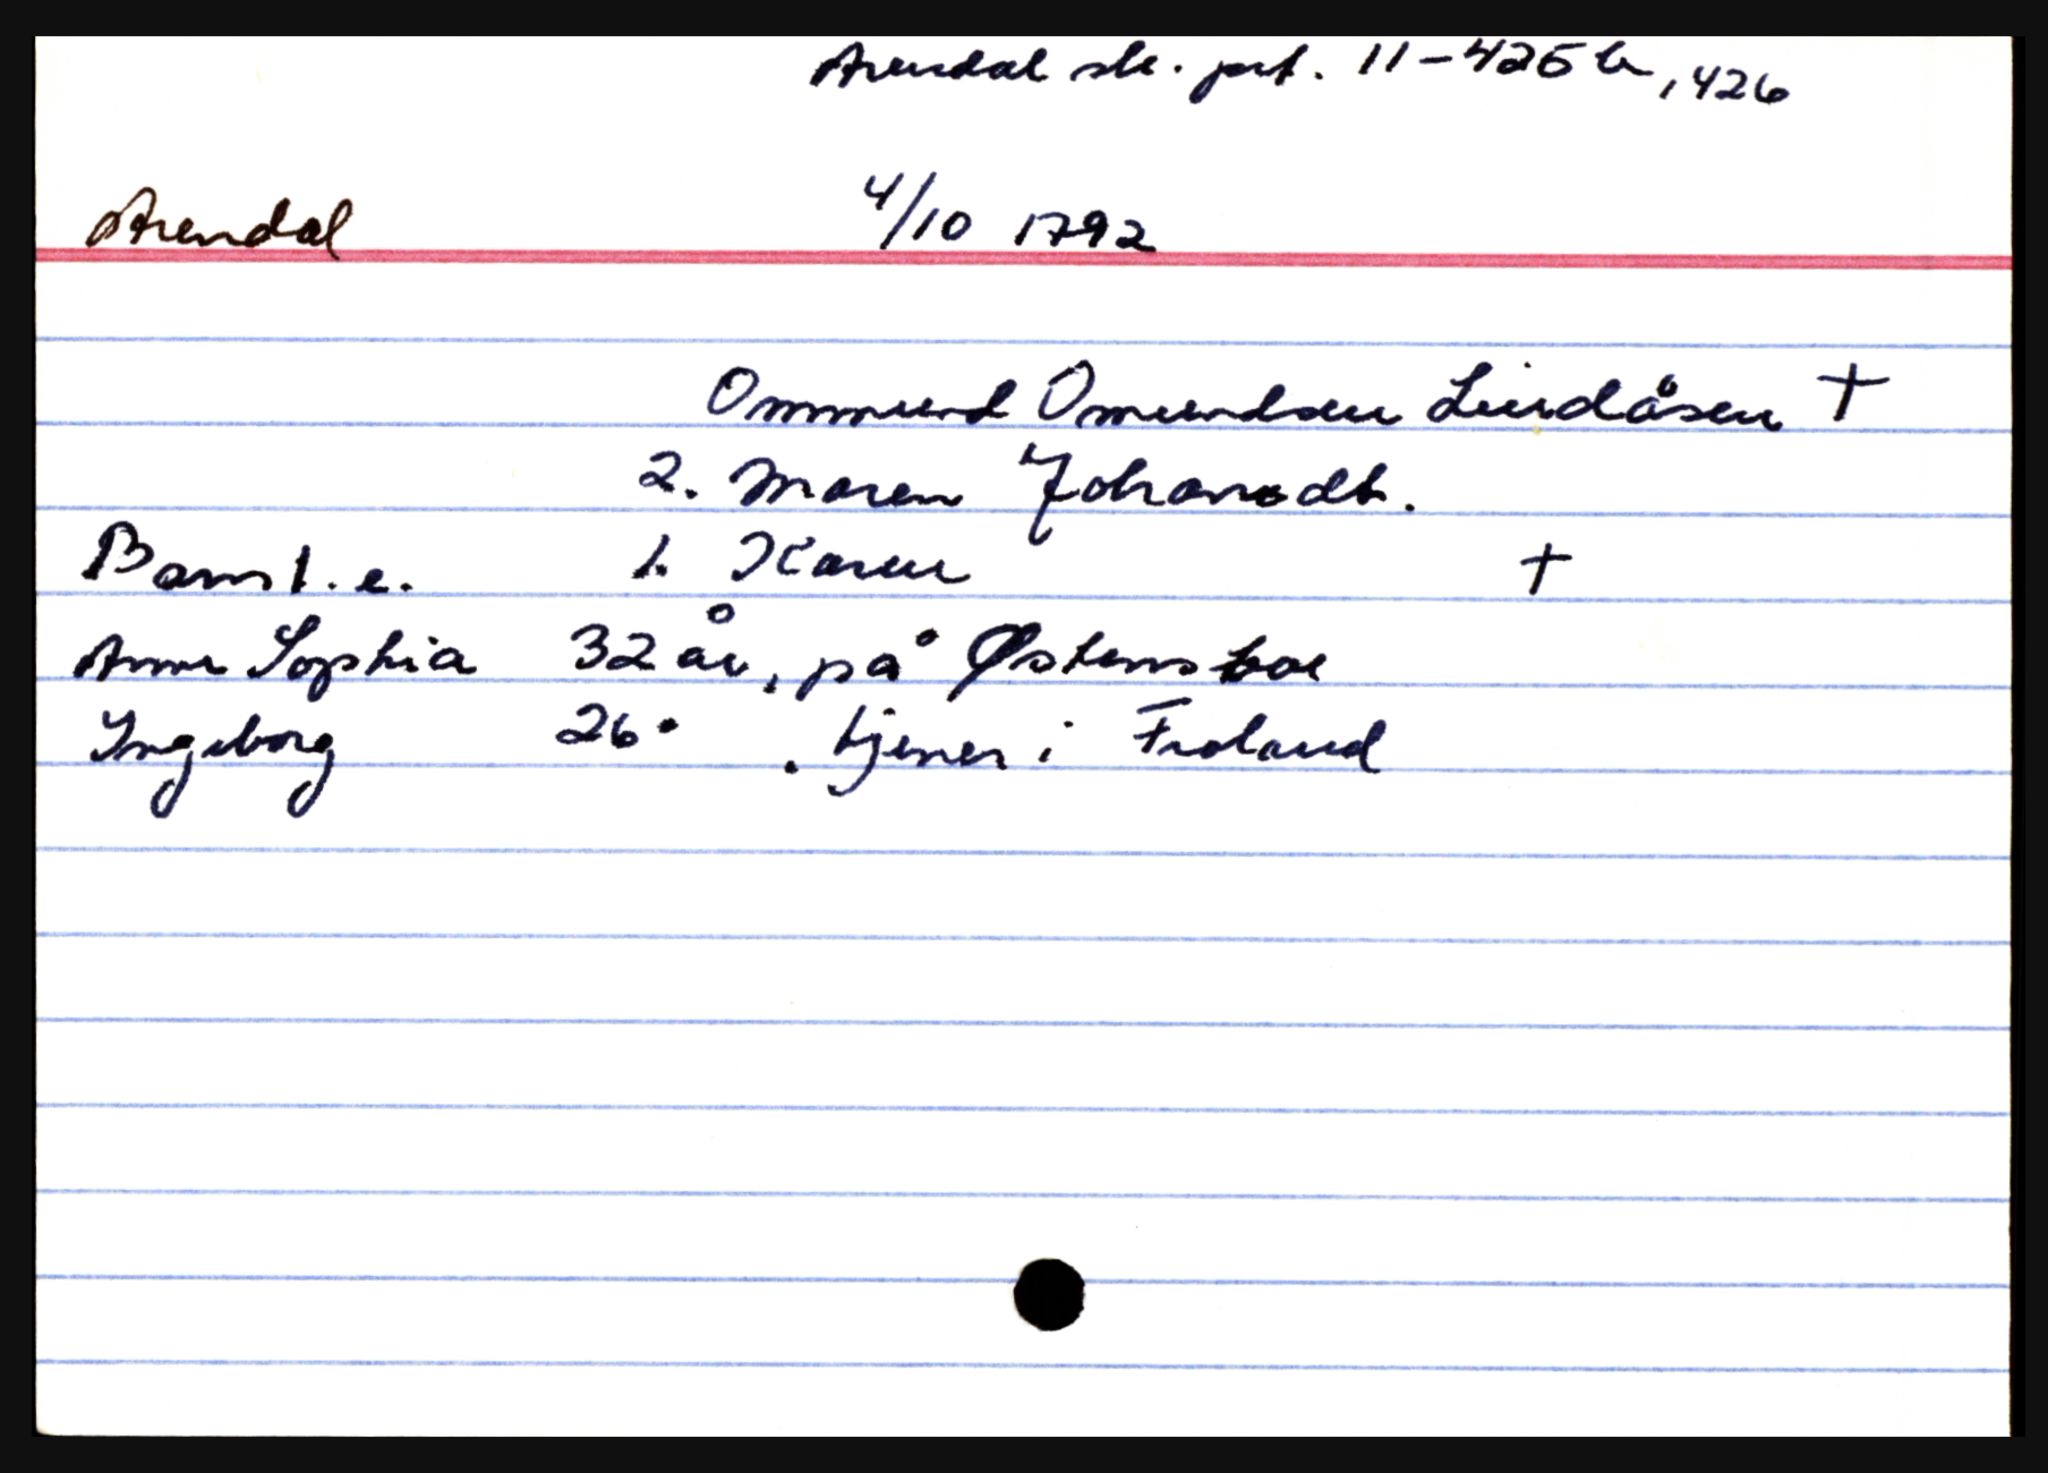 Arendal sk. prt. 11-425b, 426
Arendal 4/10 1792
Ommund Omundsen Lindåsen †
2. Maren Johansdt.
Barn 1. e. 1. Karen †
Anne Sophia 32 år, på Østensboe
Ingeborg 26" . tjener i Froland